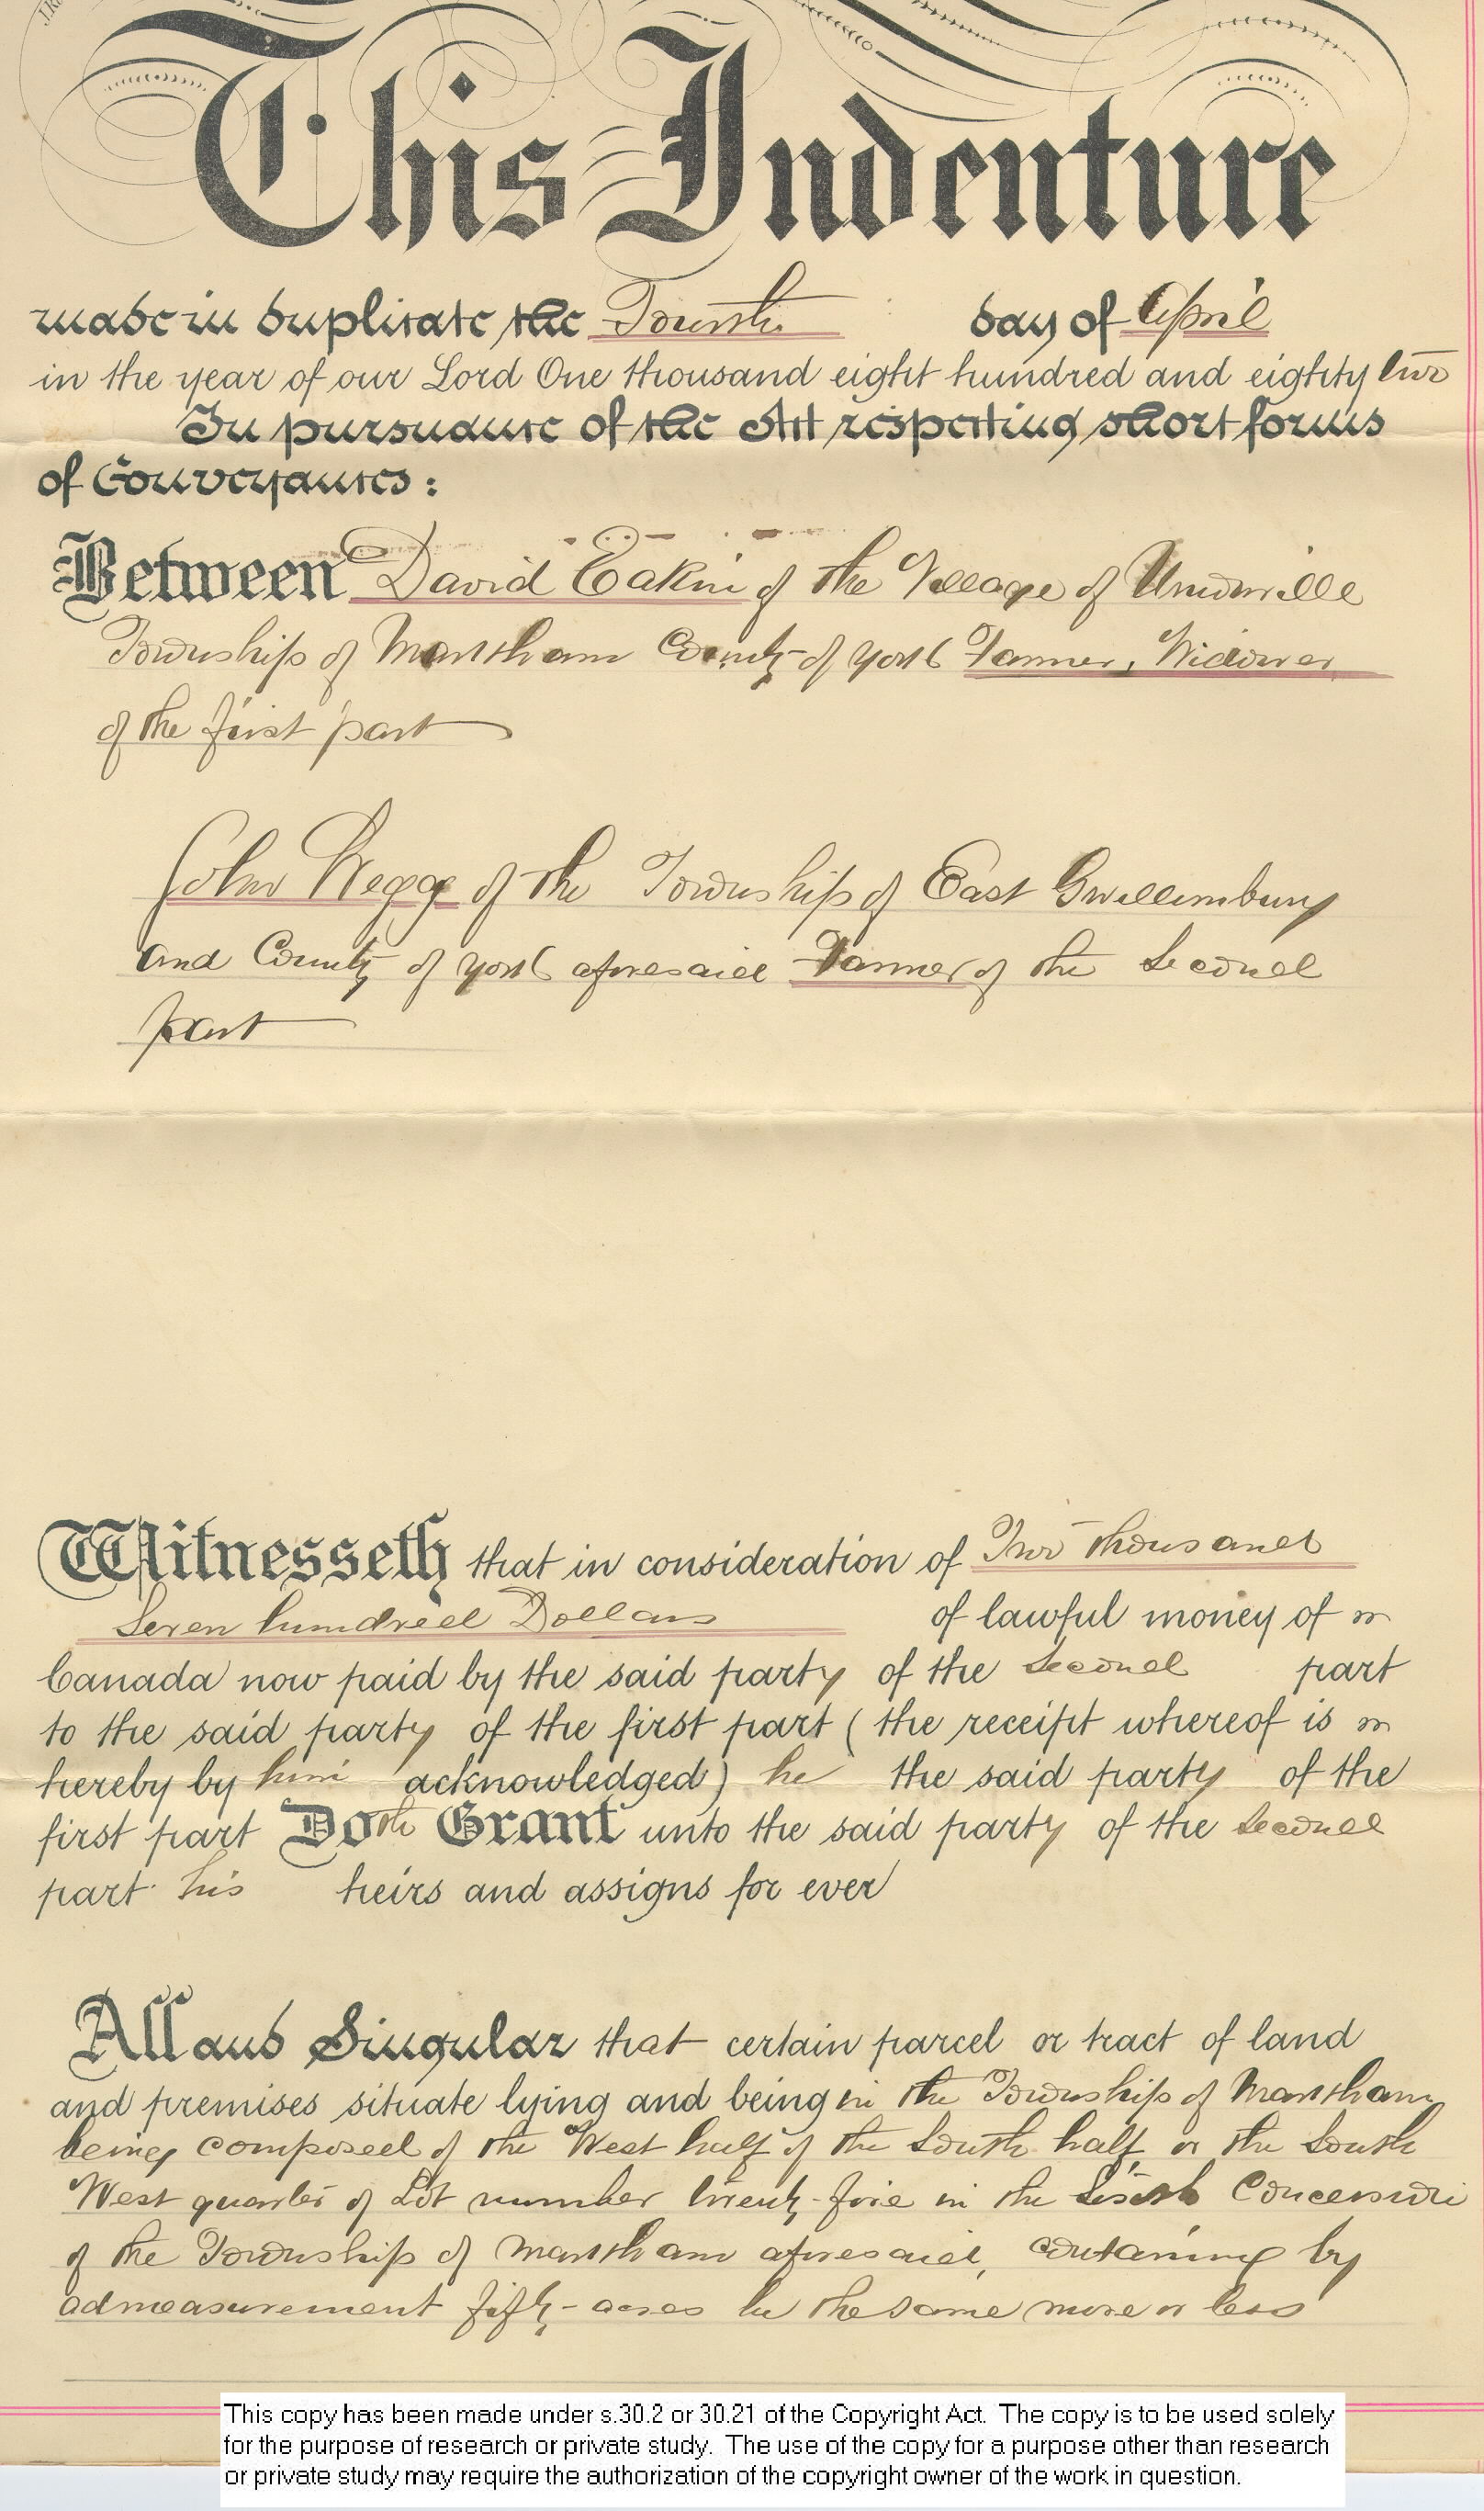 This Indenture
made in duplicate the Fourth day of April
in the year of our Lord One thousand eight hundred and eighty two
In pursuance of the Act respecting short forms
of Conveyances:
Between David Eakin of the Village of Unionville
Township of Markham County of York Farmer, Widower
of the first part
John Kegg of the Township of East Gwillimbury
and County of York aforesaid Farmer of the Second
part
Witnesseth that in consideration of Two thousand
Seven hundred Dollars of lawful money of
Canada now paid by the said party of the second part
to the said party of the first part (the receipt whereof is
hereby by him acknowledged) he the said party of the
first part Doth Grant unto the said party of the second
part his heirs and assigns for ever
All and Singular that certain parcel or tract of land
and premises situate lying and being in the Township of Markham
being composed of the West half of the South half or the South
West quarter of Lot number twenty-five in the Sixth Concession
of the Township of Markham aforesaid, containing by
admeasurement fifty-acres be the same more or less
This copy has been made under s.30.2 or 30.21 of the Copyright Act. The copy is to be used solely
for the purpose of research or private study. The use of the copy for a purpose other than research
or private study may require the authorization of the copyright owner of the work in question.